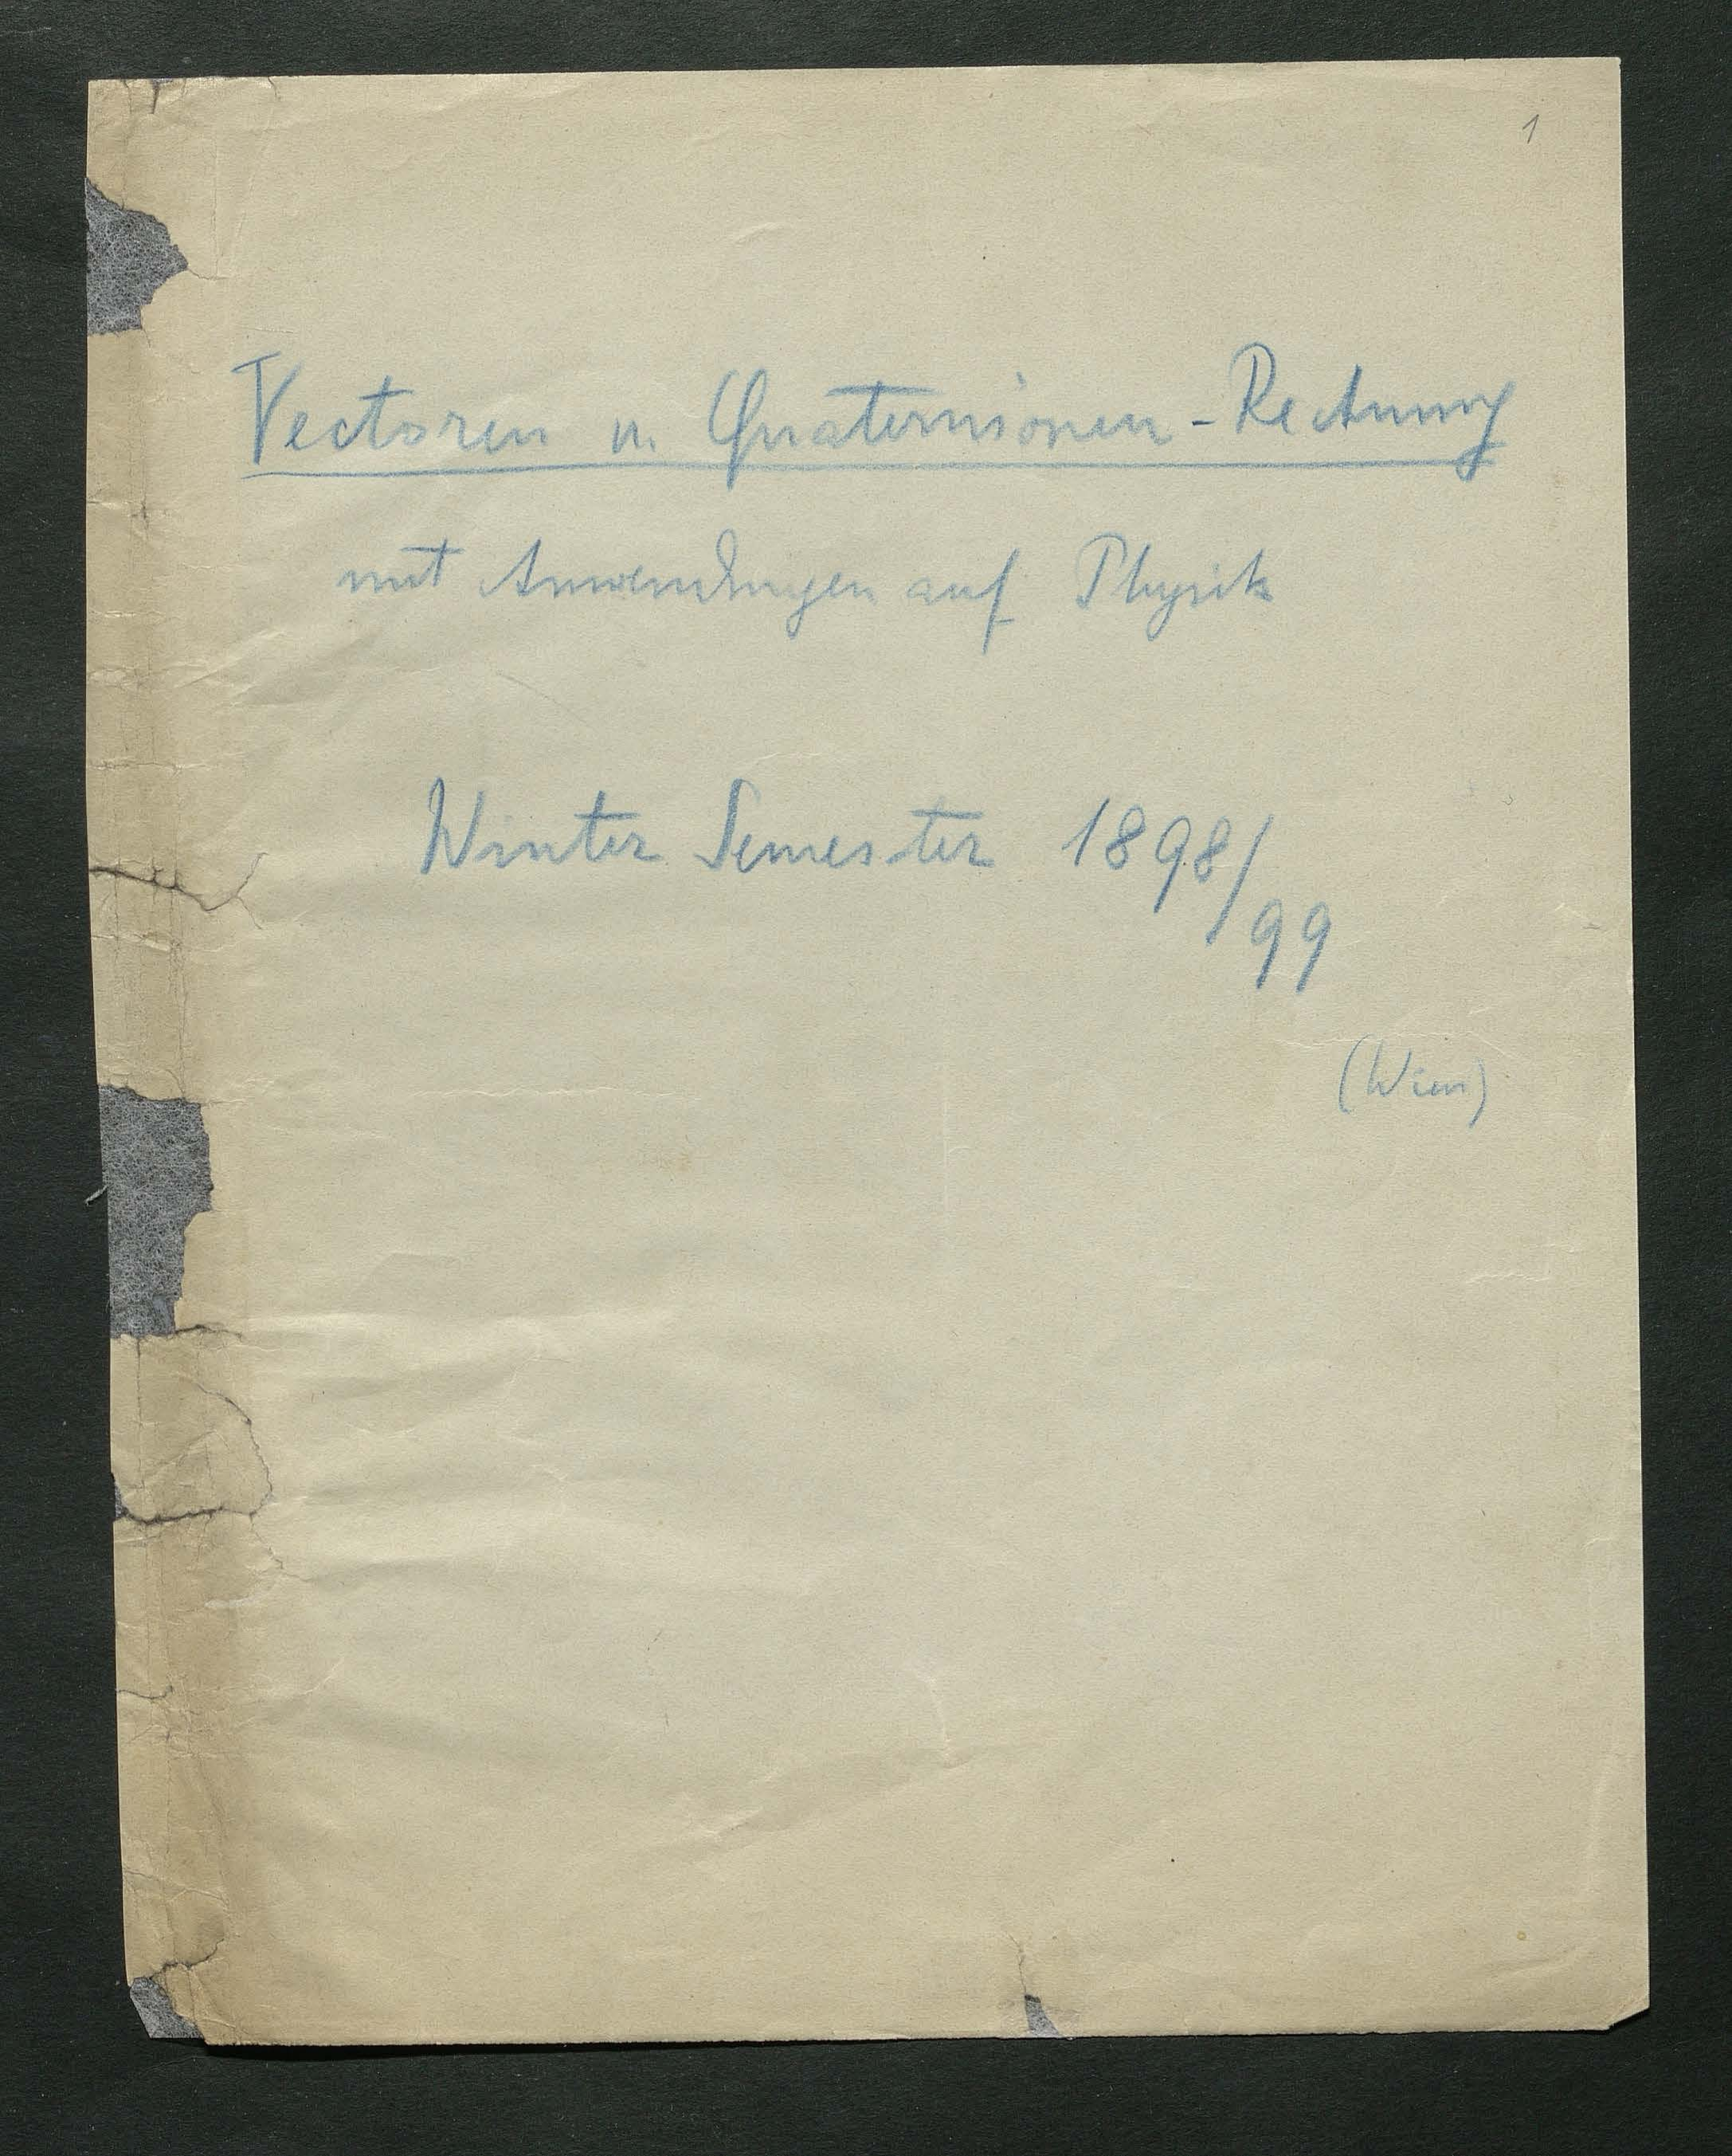 1
Vectoren u. Quaternionen-Rechnung
mit Anwendungen auf Physik
Winter Semester 1898/
99
(Wien)